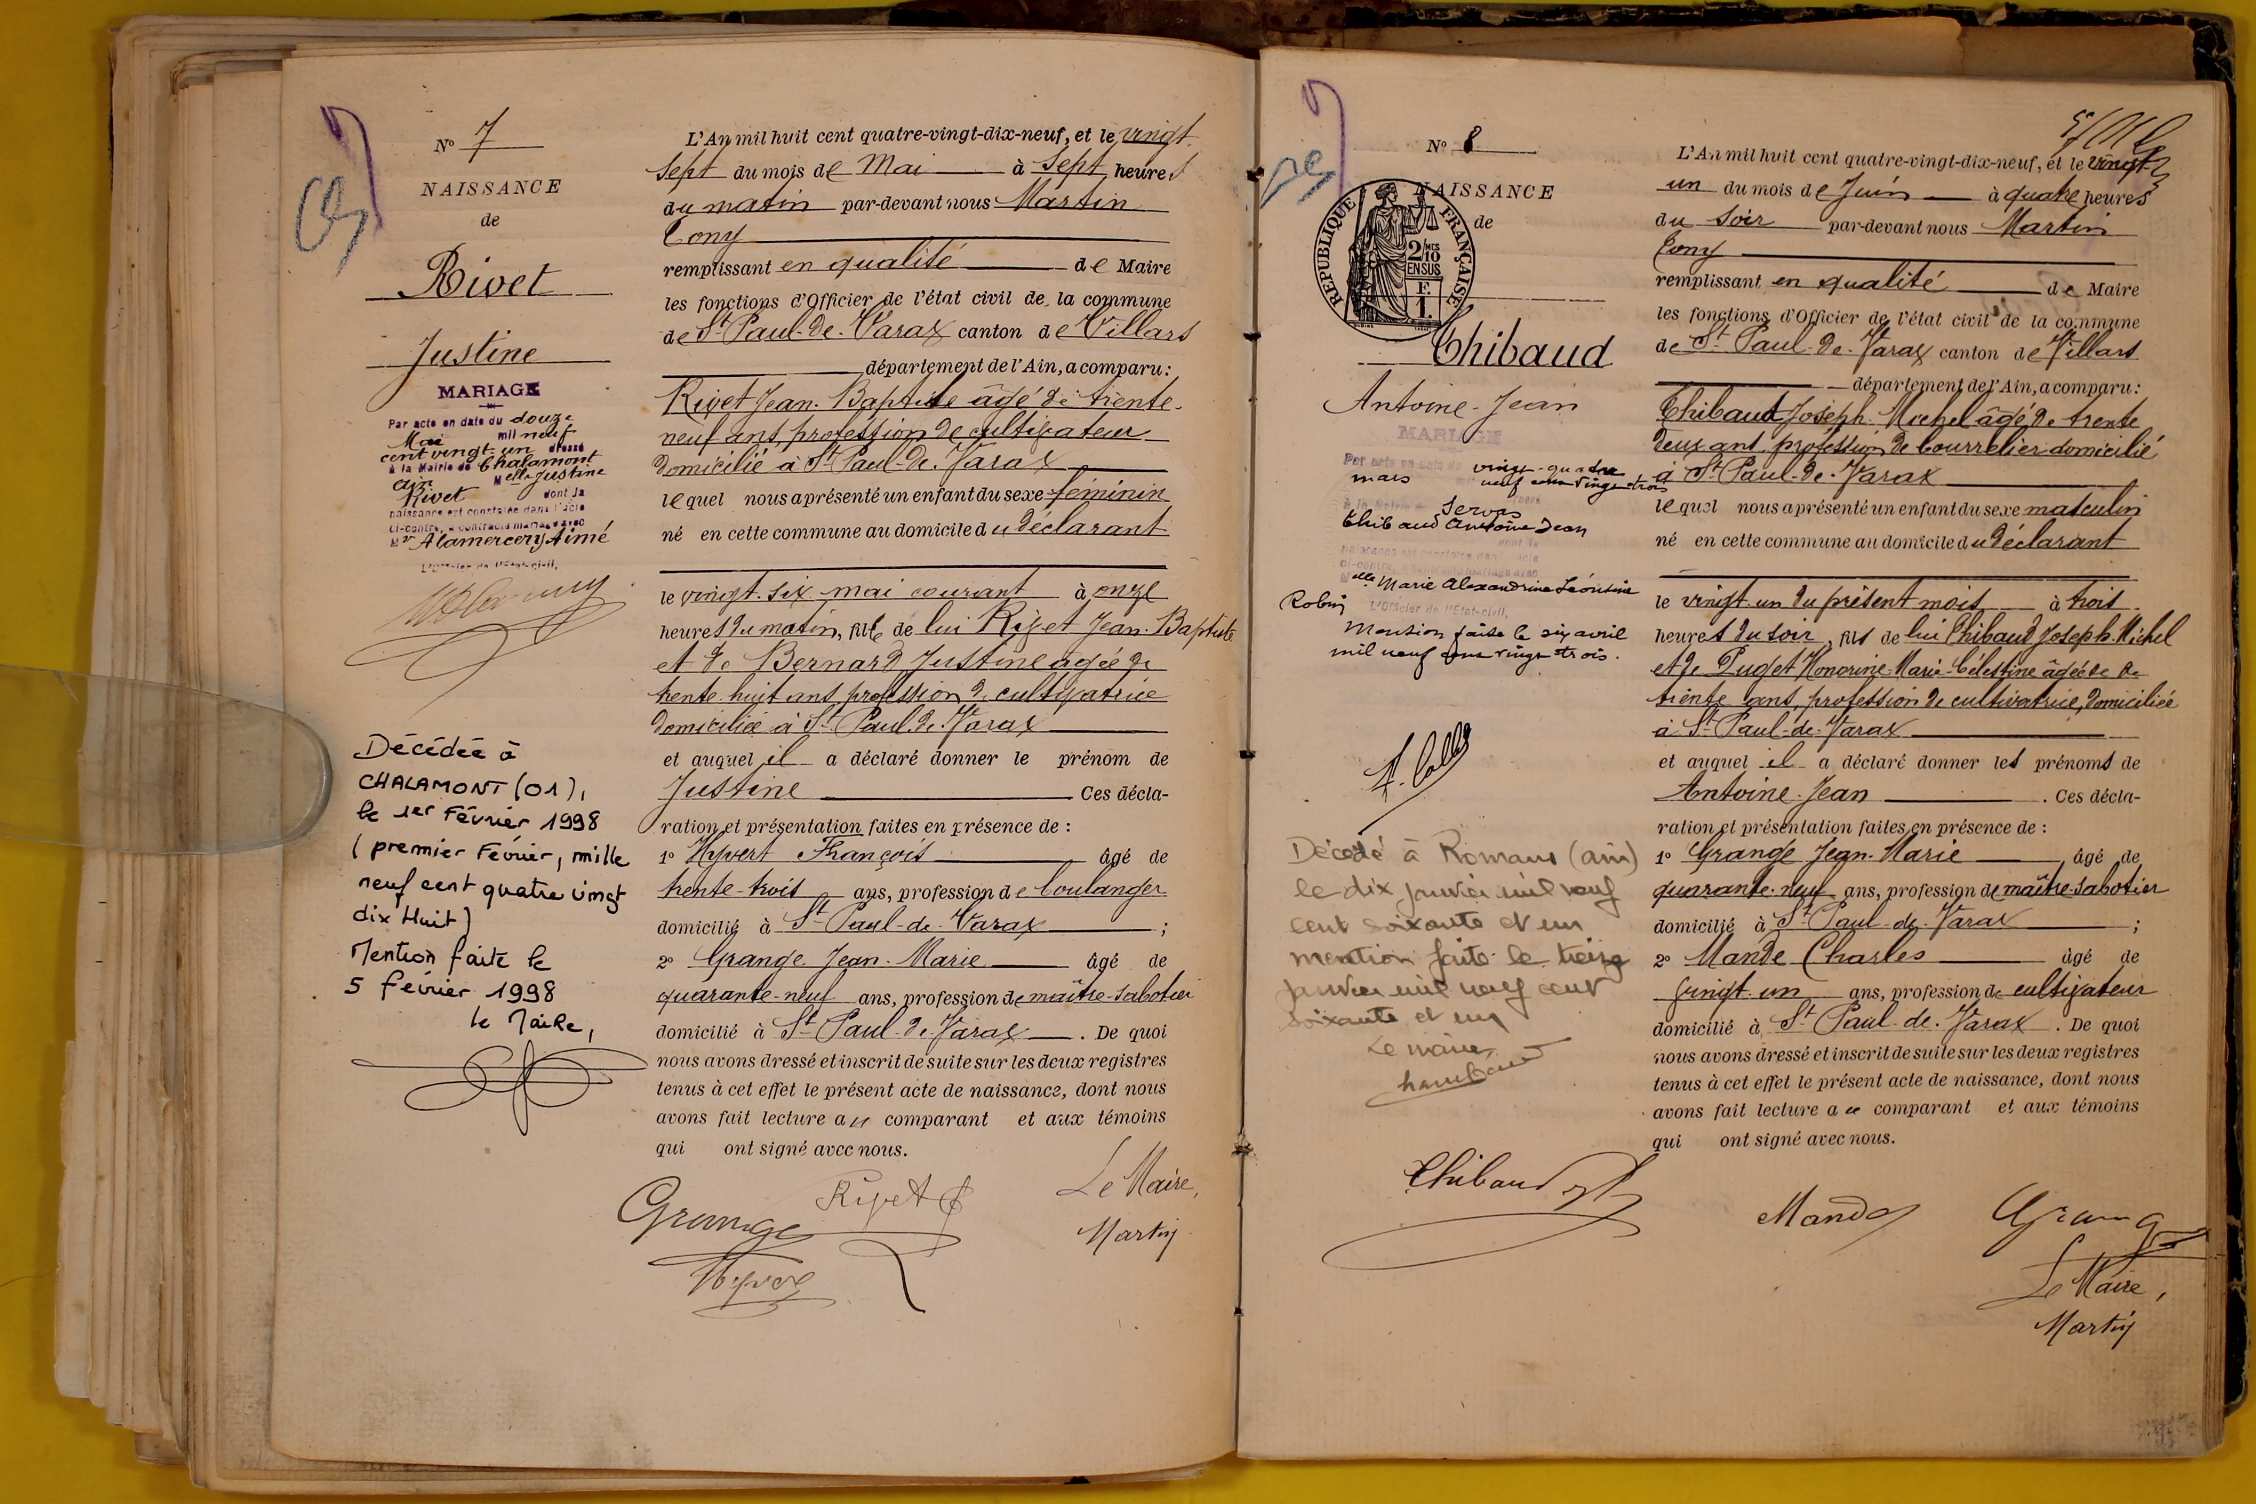 N° 7
NAISSANCE
de
Rivet
Justine
MARIAGE
Par acte en date du douze
Mai mil neuf
cent vingt-un dressé
à la Mairie de Chalamont
Ain Melle Justine
Rivet dont la
naissance est constatée dans l'acte
ci-contre, a contracté mariage avec
Mr Alamercery Aimé
L'Officier de l'Etat-civil,
Décédée à
CHALAMONT (01),
le 1er Février 1998
(premier Février, mille
neuf cent quatre vingt
dix Huit)
Mention faite le
5 février 1998
le Maire,
L'An mil huit cent quatre-vingt-dix-neuf, et le vingt-
sept du mois de Mai à sept heures
du matin par-devant nous Martin
Tony
remplissant en qualité de Maire
les fonctions d'Officier de l'état civil de la commune
de St Paul-de-Varax canton de Villars
département de l'Ain, a comparu :
Rivet Jean-Baptiste âgé de trente-
neuf ans, profession de cultivateur
domicilié à St Paul-de-Varax
lequel nous a présenté un enfant du sexe féminin
né en cette commune au domicile du déclarant
le vingt-six mai courant à onze
heures du matin, fille de lui Rivet Jean-Baptiste
et de Bernard Justine âgée de
trente-huit ans, profession de cultivatrice
domiciliée à St Paul-de-Varax
et auquel il a déclaré donner le prénom de
Justine Ces décla-
ration et présentation faites en présence de :
1° Hyvert François âgé de
trente-trois ans, profession de boulanger
domicilié à St Paul-de-Varax ;
2° Grange Jean-Marie âgé de
quarante-neuf ans, profession de maître-sabotier
domicilié à St Paul-de-Varax . De quoi
nous avons dressé et inscrit de suite sur les deux registres
tenus à cet effet le présent acte de naissance, dont nous
avons fait lecture au comparant et aux témoins
qui ont signé avec nous.
Rivet
Le Maire,
Grange
Martin
Hyvert
N° 8
NAISSANCE
de
RÉPUBLIQUE FRANÇAISE
2/10 MES
EN SUS
F.
1.
Thibaud
Antoine-Jean
MARIAGE
Par acte en date du vingt-quatre
mars neuf cent vingt-trois
Servas
Thibaud Antoine Jean
dont la
naissance est constatée dans l'acte
ci-contre, a contracté mariage avec
Melle Marie Alexandrine Léontine
Robin
L'Officier de l'Etat-civil,
Mention faite le six avril
mil neuf cent vingt-trois.
Décédé à Romans (ain)
le dix janvier mil neuf
cent soixante et un
mention faite le treize
janvier mil neuf cent
soixante et un
Le maire
L'An mil huit cent quatre-vingt-dix-neuf, et le vingt-
un du mois de Juin à quatre heures
du soir par-devant nous Martin
Tony
remplissant en qualité de Maire
les fonctions d'Officier de l'état civil de la commune
de St Paul-de-Varax canton de Villars
département de l'Ain, a comparu :
Thibaud Joseph-Michel âgé de trente
deux ans, profession de bourrelier domicilié
à St Paul-de-Varax
lequel nous a présenté un enfant du sexe masculin
né en cette commune au domicile du déclarant
le vingt-un du présent mois à trois
heures du soir, fils de lui Thibaud Joseph-Michel
et de Puget Honorine-Marie-Célestine âgée de de
trente ans, profession de cultivatrice, domiciliée
à St Paul-de-Varax
et auquel il a déclaré donner les prénoms de
Antoine-Jean . Ces décla-
ration et présentation faites en présence de :
1° Grange Jean-Marie âgé de
quarante-neuf ans, profession de maître-sabotier
domicilié à St Paul-de-Varax ;
2° Mande Charles âgé de
vingt-un ans, profession de cultivateur
domicilié à St Paul-de-Varax . De quoi
nous avons dressé et inscrit de suite sur les deux registres
tenus à cet effet le présent acte de naissance, dont nous
avons fait lecture au comparant et aux témoins
qui ont signé avec nous.
Thibaud
Mande
Grange
Le Maire,
Martin